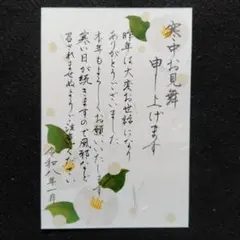 寒中お見舞
申し上げます
昨年は大変お世話になり
ありがとうございました
本年もよろしくお願いいたします
寒い日が続きますので風邪など
召されませぬようご注意ください
令和八年一月